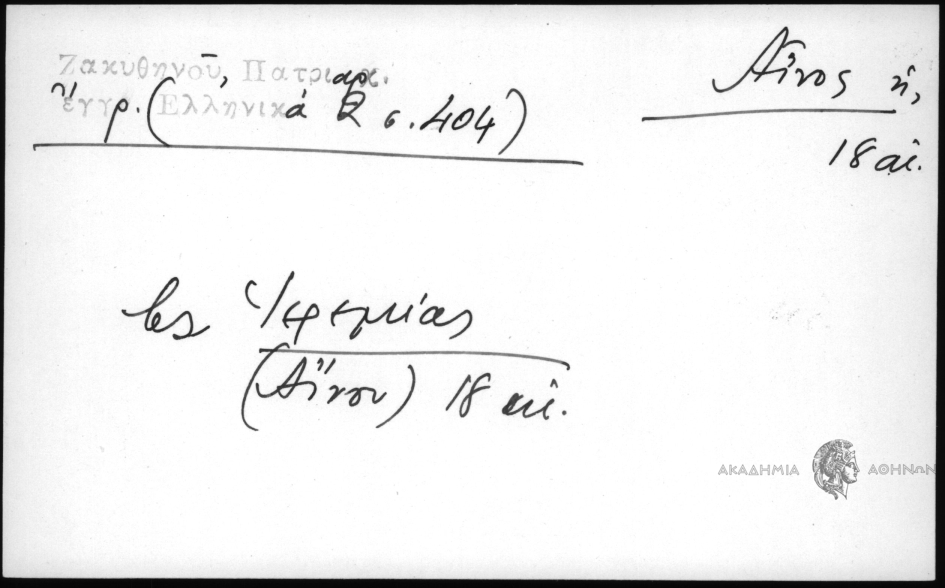 Ζακυθηνοῦ, Πατριαρχ.
ἔγγρ. (Ἑλληνικά 2 σ. 404)
Αἶνος ἡ,
18 αἰ.
βλ Ἱερεμίας
(Αἴνου) 18 αἰ.
ΑΚΑΔΗΜΙΑ ΑΘΗΝΩΝ